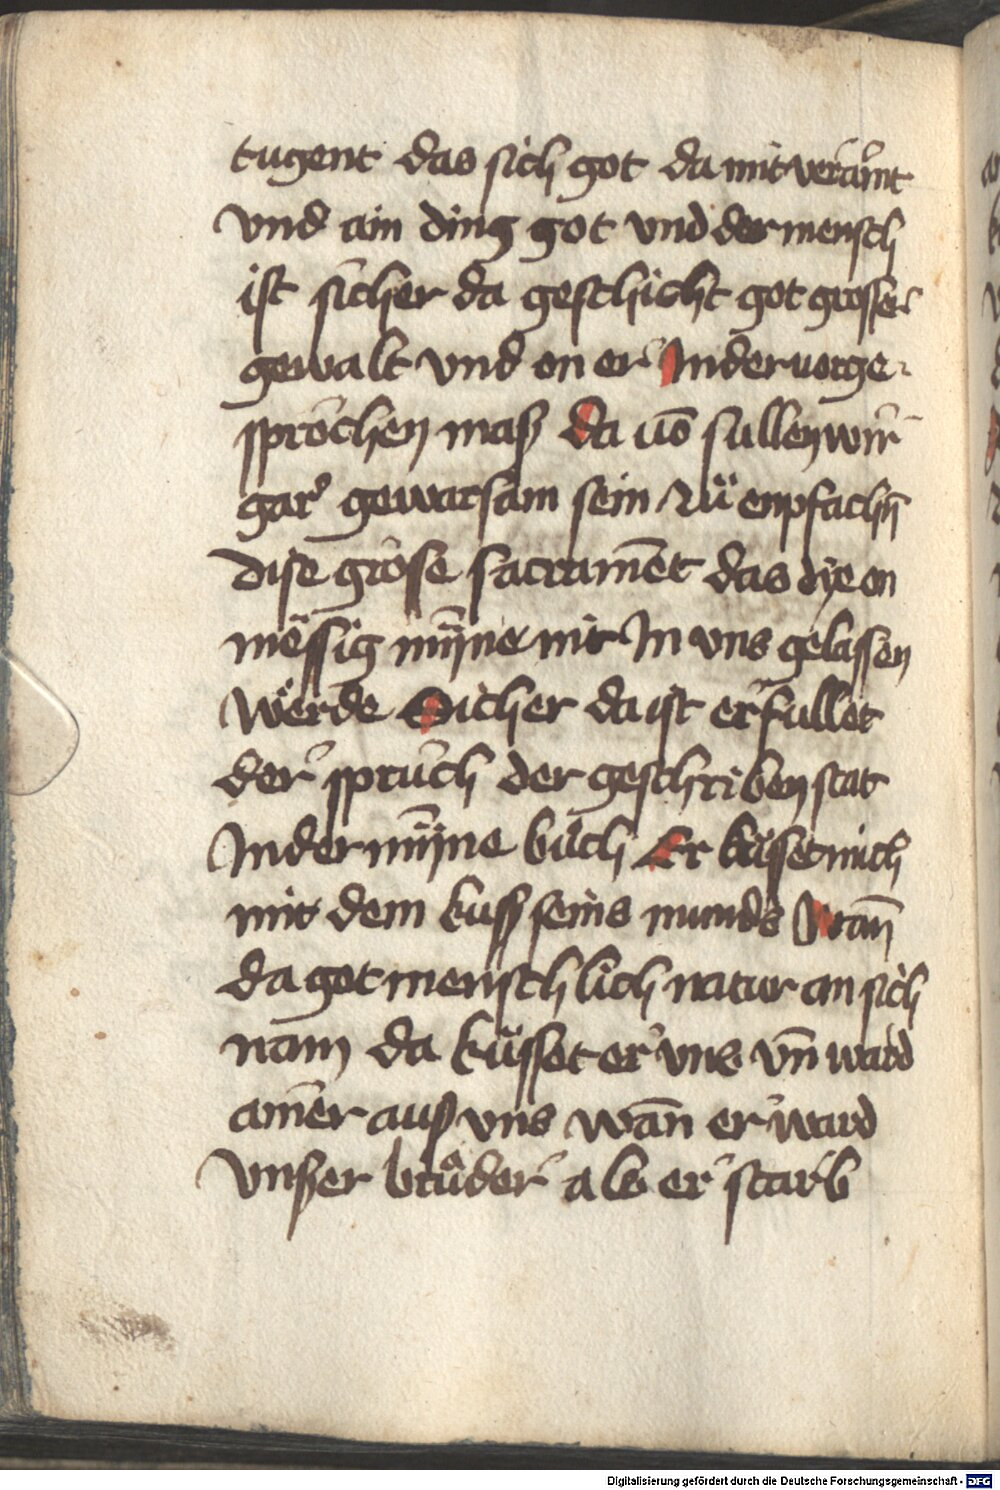 tugent das sich got da mit veraint
vnd ain ding got vnd der mensch
ist sicher da geschicht got grosser
gewalt vnd on er In der vorge-
sprochen masß da vō sullen wir
gar gewarsam sein zü enpfachñ
dise grose sacramēt das dye on
mëssig mīne nit In vns gelassen
wërde Sicher da ist erfullet
der spruch der geschriben stat
In der mīne büch Er küsset mich
mit dem kuss seins munds Wañ
da got menschlich natur an sich
nam da küsset er vns vñ ward
ainer auß vns wān er ward
vnßer brůder als er starb
Digitalisierung gefördert durch die Deutsche Forschungsgemeinschaft - DFG